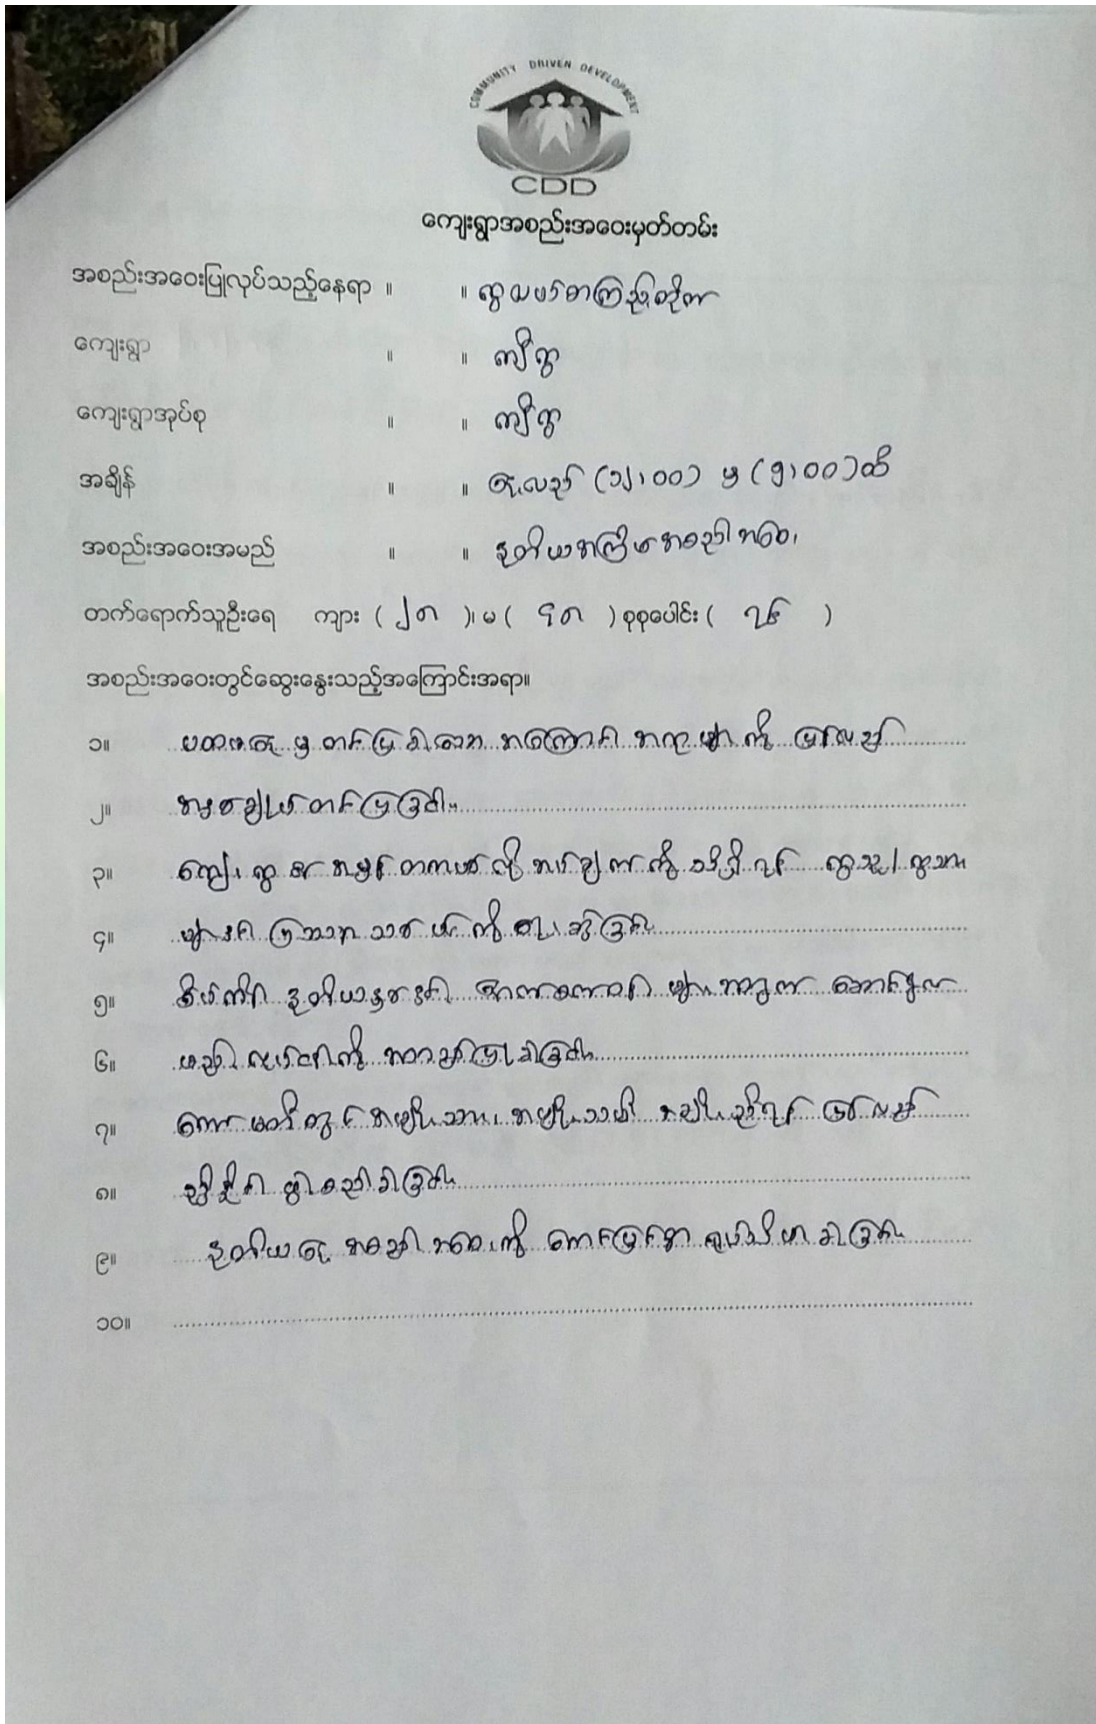 COMMUNITY DRIVEN DEVELOPMENT
CDD
ကျေးရွာအစည်းအဝေးမှတ်တမ်း
အစည်းအဝေးပြုလုပ်သည့်နေရာ ။ ။
ကျေးရွာ ။ ။ ကျီးရွာ
ကျေးရွာအုပ်စု ။ ။ ကျီးရွာ
အချိန် ။ ။ နေ့လည် (၁၂း၀၀) မှ (၅း၀၀) ထိ
အစည်းအဝေးအမည် ။ ။ ဒုတိယအကြိမ်အစည်းအဝေး
တက်ရောက်သူဦးရေ ကျား ( ၂၈ )၊ မ ( ၄၈ ) စုစုပေါင်း ( ၇၆ )
အစည်းအဝေးတွင်ဆွေးနွေးသည့်အကြောင်းအရာ။
၁။ ပထမနေ့မှ တင်ပြခဲ့သော အကြောင်းအရာများကို ပြန်လည်
၂။ အနှစ်ချုပ်တင်ပြခြင်း။
၃။ ကျေးရွာ၏ အမှန်တကယ်လိုအပ်ချက်ကို သိရှိရန် ရွာသူ၊ ရွာသား
၄။ များနှင့် ပြဿနာသစ်ပင်ကို ရေးဆွဲခြင်း။
၅။ စိမ်းကိုင်းဒုတိယနှစ်နှင့် များအတွက် ဆောင်ရွက်
၆။ မည့် လုပ်ငန်းကို အတည်ပြုခဲ့ခြင်း။
၇။ ကော်မတီတွင် အမျိုးသား၊ အမျိုးသမီး အချိုးညီရန် ပြန်လည်
၈။ ညှိနှိုင်း ဖွဲ့စည်းခဲ့ခြင်း။
၉။ ဒုတိယနေ့ အစည်းအဝေးကို အောင်မြင်စွာ ရုပ်သိမ်းခဲ့ခြင်း။
၁၀။